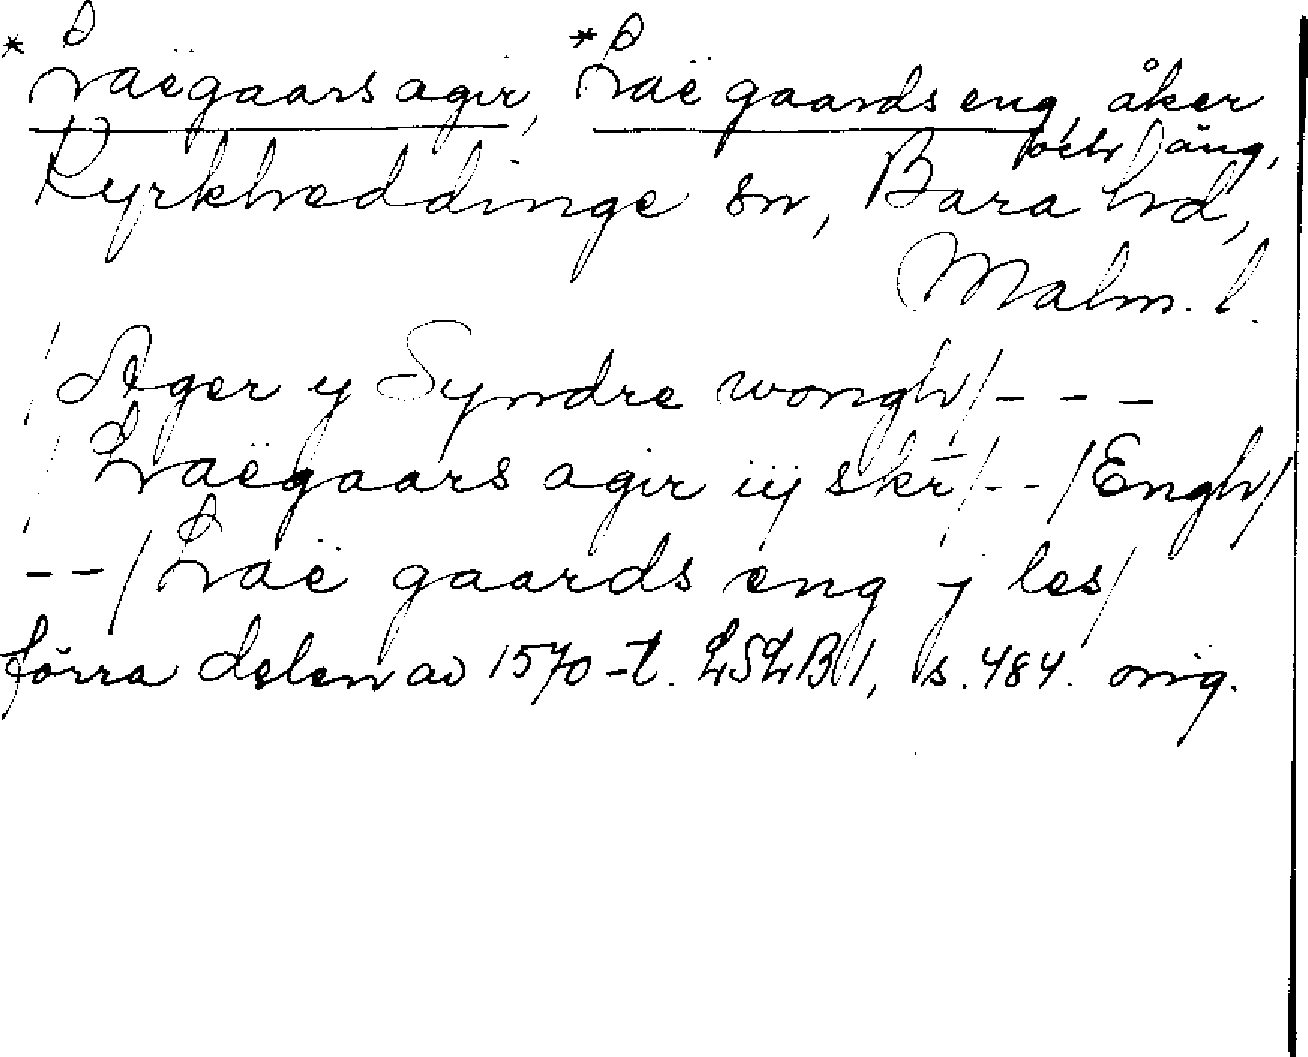 * Laëgaars agir, * Laë gaards eng, åker
och äng,
Kyrkheddinge sn, Bara hd,
Malm. l.
/Ager y Syndre wongh/ - - -
/Laëgaars agir iij skr̄/ - - /Engh/
- - /Laë gaards eng j les/
förra delen av 1570-t. LSLB 1, s. 484. orig.